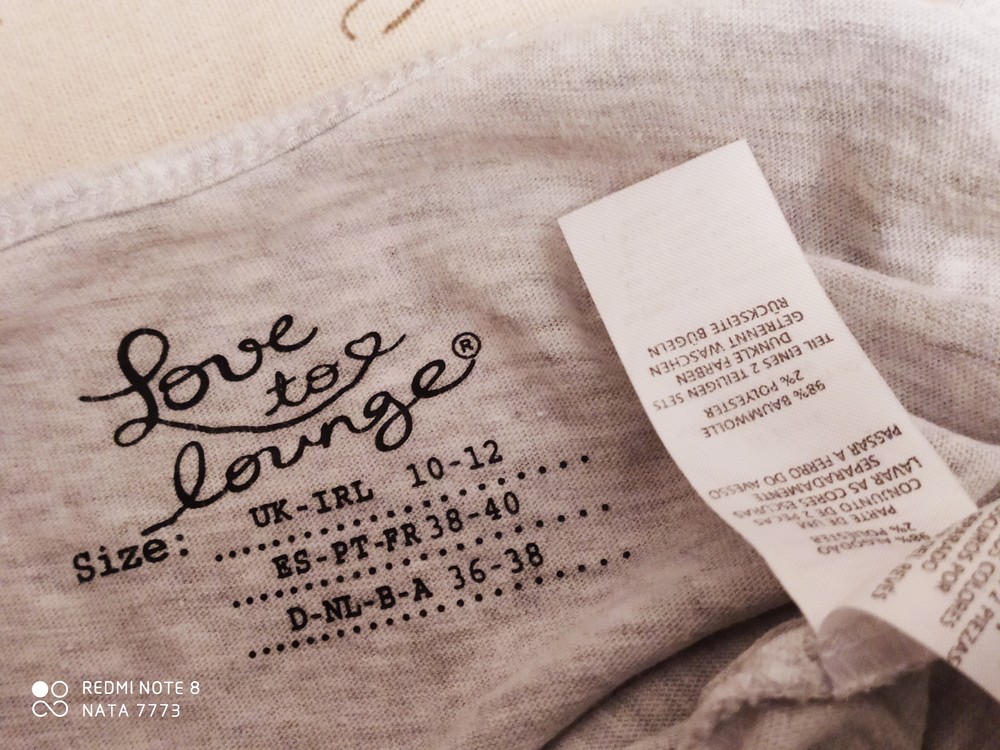 Love
to
lounge®
Size:
UK-IRL 10-12
ES-PT-FR 38-40
D-NL-B-A 36-38
98% BAUMWOLLE
2% POLYESTER
TEIL EINES 2 TEILIGEN SETS
DUNKLE FARBEN
GETRENNT WASCHEN
RÜCKSEITE BÜGELN
98% ALGODÃO
2% POLIÉSTER
PARTE DE UM
CONJUNTO DE 2 PEÇAS
LAVAR AS CORES ESCURAS
SEPARADAMENTE
PASSAR A FERRO DO AVESSO
PIEZAS
COLORES
POR
REVÉS
REDMI NOTE 8
NATA 7773